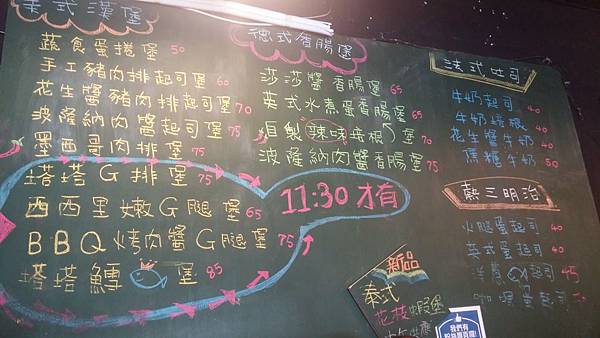 美式漢堡
蔬食蛋捲堡 50
手工豬肉排起司堡 60
花生醬豬肉排起司堡 70
波隆納肉醬起司堡 75
墨西哥肉排堡 75
塔塔G排堡 75
西西里嫩G腿堡 65
BBQ烤肉醬G腿堡 75
塔塔鱈 堡 85
11:30才有
德式香腸堡
莎莎醬香腸堡 65
英式水煮蛋香腸堡 65
自製辣味培根堡 70
波隆納肉醬香腸堡 75
法式吐司
牛奶起司 40
牛奶培根 40
花生醬牛奶 40
焦糖牛奶 50
熱三明治
火腿蛋起司 40
英式蛋起司 40
洋蔥 起司 45
咖哩蛋起司
新品
泰式
花枝蝦堡
我們有
粉絲團頁喔!